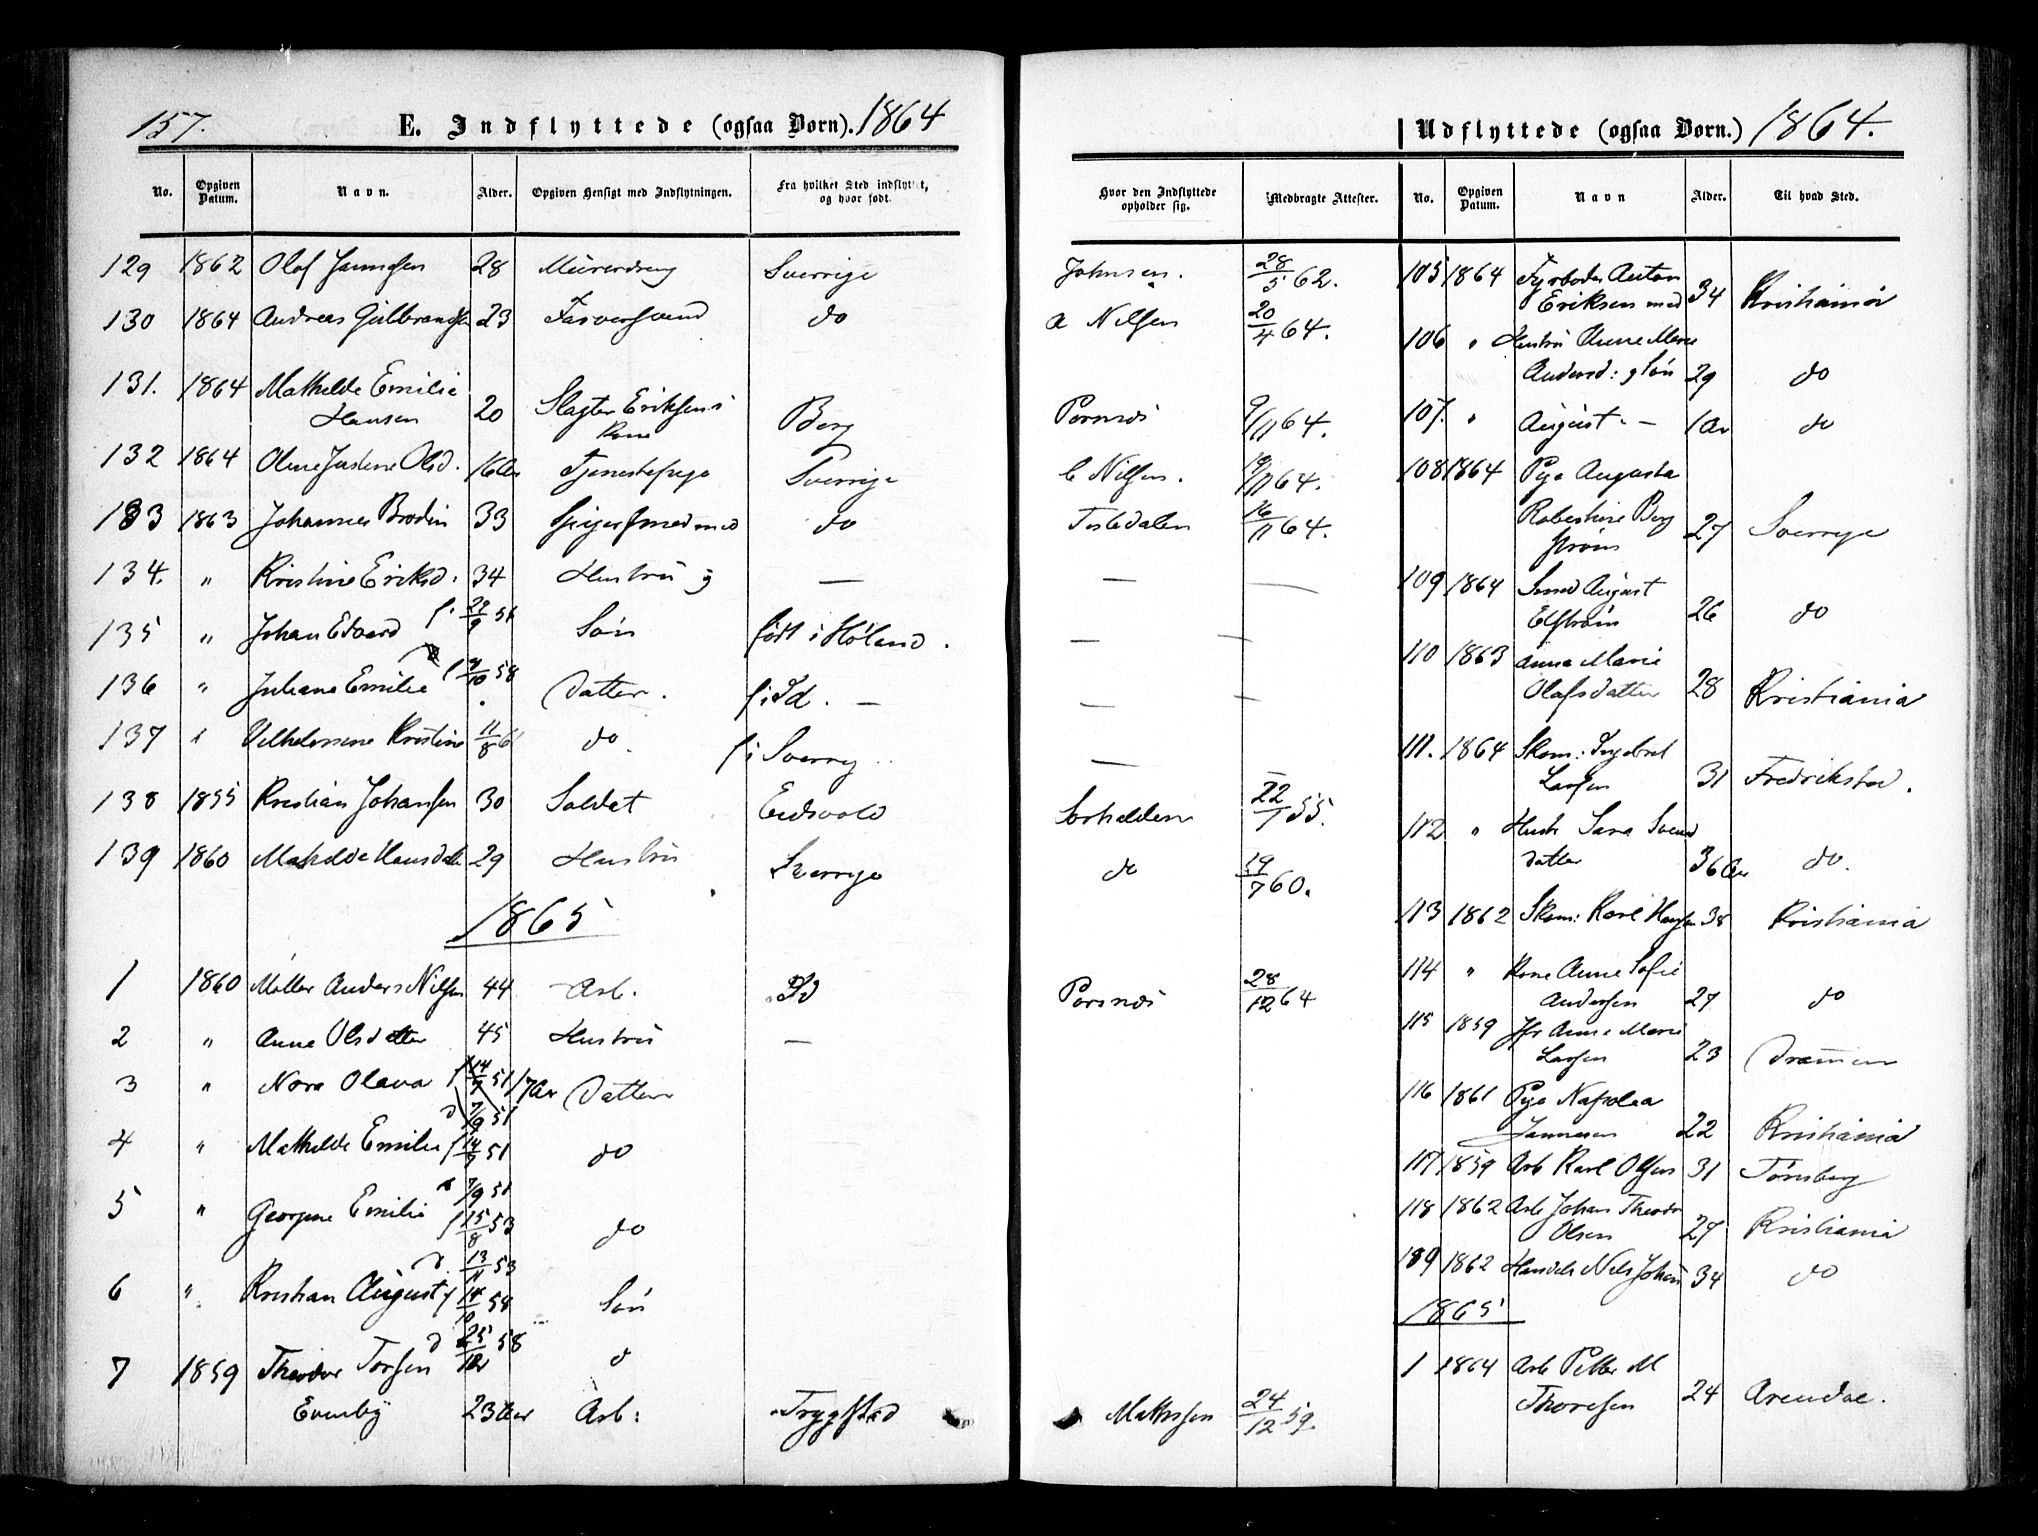 157.
E. Indflyttede (ogsaa Børn). 1864
No. Opgiven Datum. Navn. Alder. Opgiven Hensigt med Indflytningen. Fra hvilket Sted indflyttet, og hvor født.
129 1862 Olof 28 Murerdreng Sverrige
130 1864 Andreas Gulbrandsen 23 Farversvend do
131. 1864 Mathilde Emilie
Hansen 20 Slagter Eriksens Kone Berg
132 1864 Oline Justine Olsd. 16 Aar Tjenestepige Sverrige
133 1863 Johannes Brodin 33 Spigersmed med do
134. " Kristine Eriksd. 34 Hustru g —
135 " Johan Edvard f. 29/9 56 Søn født i Høland.
136 " Juliane Emilie f 9/10 58 Datter. f i Id. —
137 " Vilhelmine Kristine 11/8 61 do f i Sverrig
138 1855 Kristian Johansen 30 Soldat Eidsvold
139 1860 Mathilde Hansdatter 29 Hustru Sverrige
1865
1 1860 Møller Anders Nilsen 44 Arb. Id
2 " Anne Olsdatter 45 Hustru —
3 " Nora Olava f 14/7 51 17 Aar Datter
d 7/9 51
4 " Mathilde Emilie f 14/7 51 do
d 7/9 51
5 " Georgine Emilie f 15/8 53 do
d 13/11 53
6 " Kristian August f 14/10 58 Søn
d 25/12 58
7 1859 Theodor Torsen d
Evenby 23 Aar Arb: Trygstad
Udflyttede (ogsaa Børn.) 1864.
Hvor den Indflyttede opholder sig. Medbragte Attester. No. Opgiven Datum. Navn Alder. Til hvad Sted.
Johnsen. 28/5 62.
a Nilsen 20/4 64.
Porsnes 9/11 64.
C Nilsen. 19/11 64.
Tistedalen 16/11 64.
— —
— —
— —
— —
Sørhalden 22/1 55.
do 19/7 60.
Porsnes 28/12 64
Mathissen 24/12 59.
105 1864 Fyrbøder Anton
Eriksen med 34 Kristiania
106 " Hustru Anne Marie
Andersd: g Søn 29 do
107. " August — 1 Aar do
108 1864 Pige Augusta
Robertine Berg
strøm 27 Sverrige
109 1864 Smed August
Elfstrøm 26 do
110 1863 Anna Marie
Olafsdatter 28 Kristiania
111. 1864 Skom: Ingebret
Larsen 31 Fredrikstad.
112 " Hustr Sara Svend
datter 36 Aar do.
113 1862 Skom: Karl Hansen 38 Kristiania
114 " Kone Anne Sofie
Andersen 27 do
115 1859 Jfr Anne Marie
Larsen 23 Drammen
116 1861 Pige Napolea
Jannesen 22 Kristiania
117 1859 Arb Karl Olsen 31 Tønsberg
118 1862 Arb Johan Theodor
Olsen 27 Kristiania
119 1862 Handels Nils Johan 34 do
1865
1 1864 Arb Petter M
Thoresen 24 Arendal.